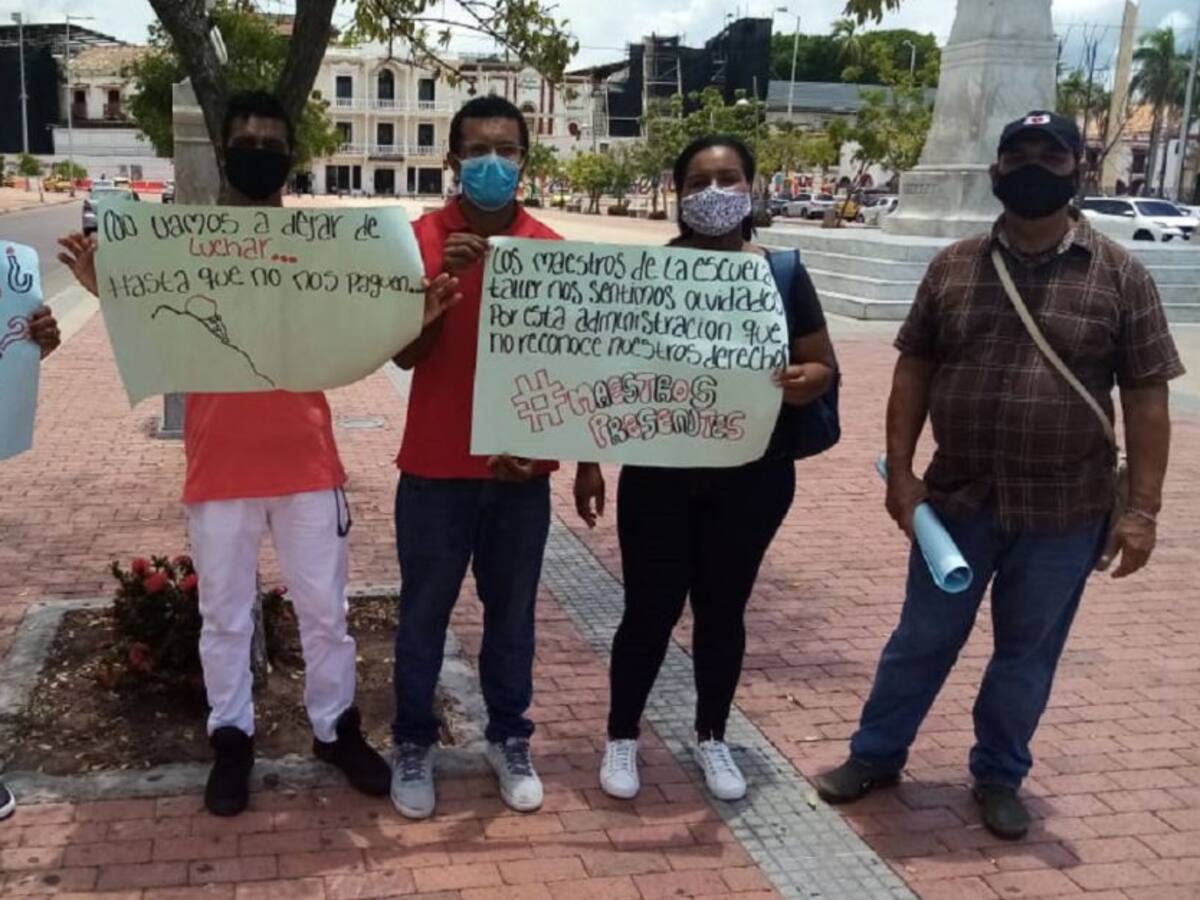 No vamos a dejar de
Luchar...
Hasta que no nos paguen...
Los maestros de la escuela
taller nos sentimos olvidados
Por esta administracion que
no reconoce nuestros derechos
#maestros
Presentes
¿
?